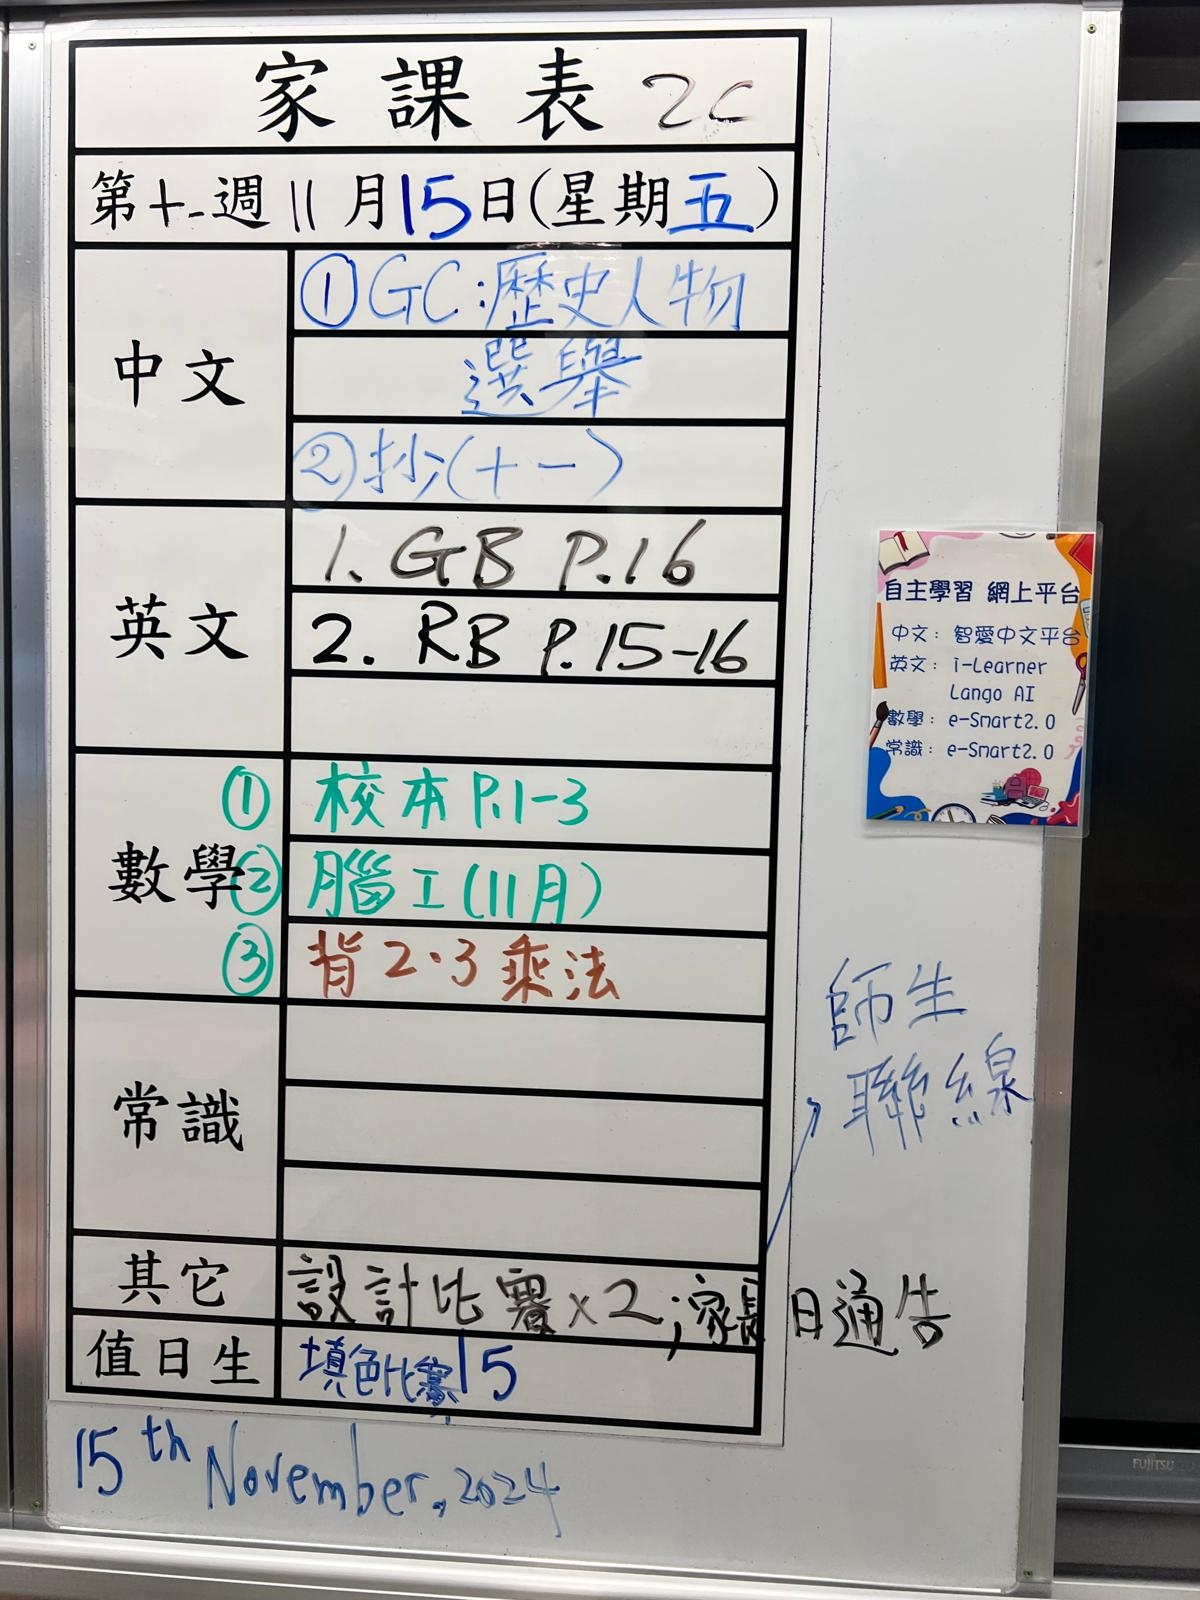 家課表 2C
第十一週 11月15日(星期五)
中文
①GC:歷史人物
選舉
②抄(十一)
英文
1. GB P.16
2. RB P.15-16
數學
① 校本 P.1-3
② 腦工(11月)
③ 背2.3乘法
常識
其它
設計比賽x2;家長日通告
師生
聯線
值日生
填色比賽 15
15th November, 2024
自主學習 網上平台
中文: 智愛中文平台
英文: i-Learner
Lango AI
數學: e-Smart2.0
常識: e-Smart2.0
FUJITSU